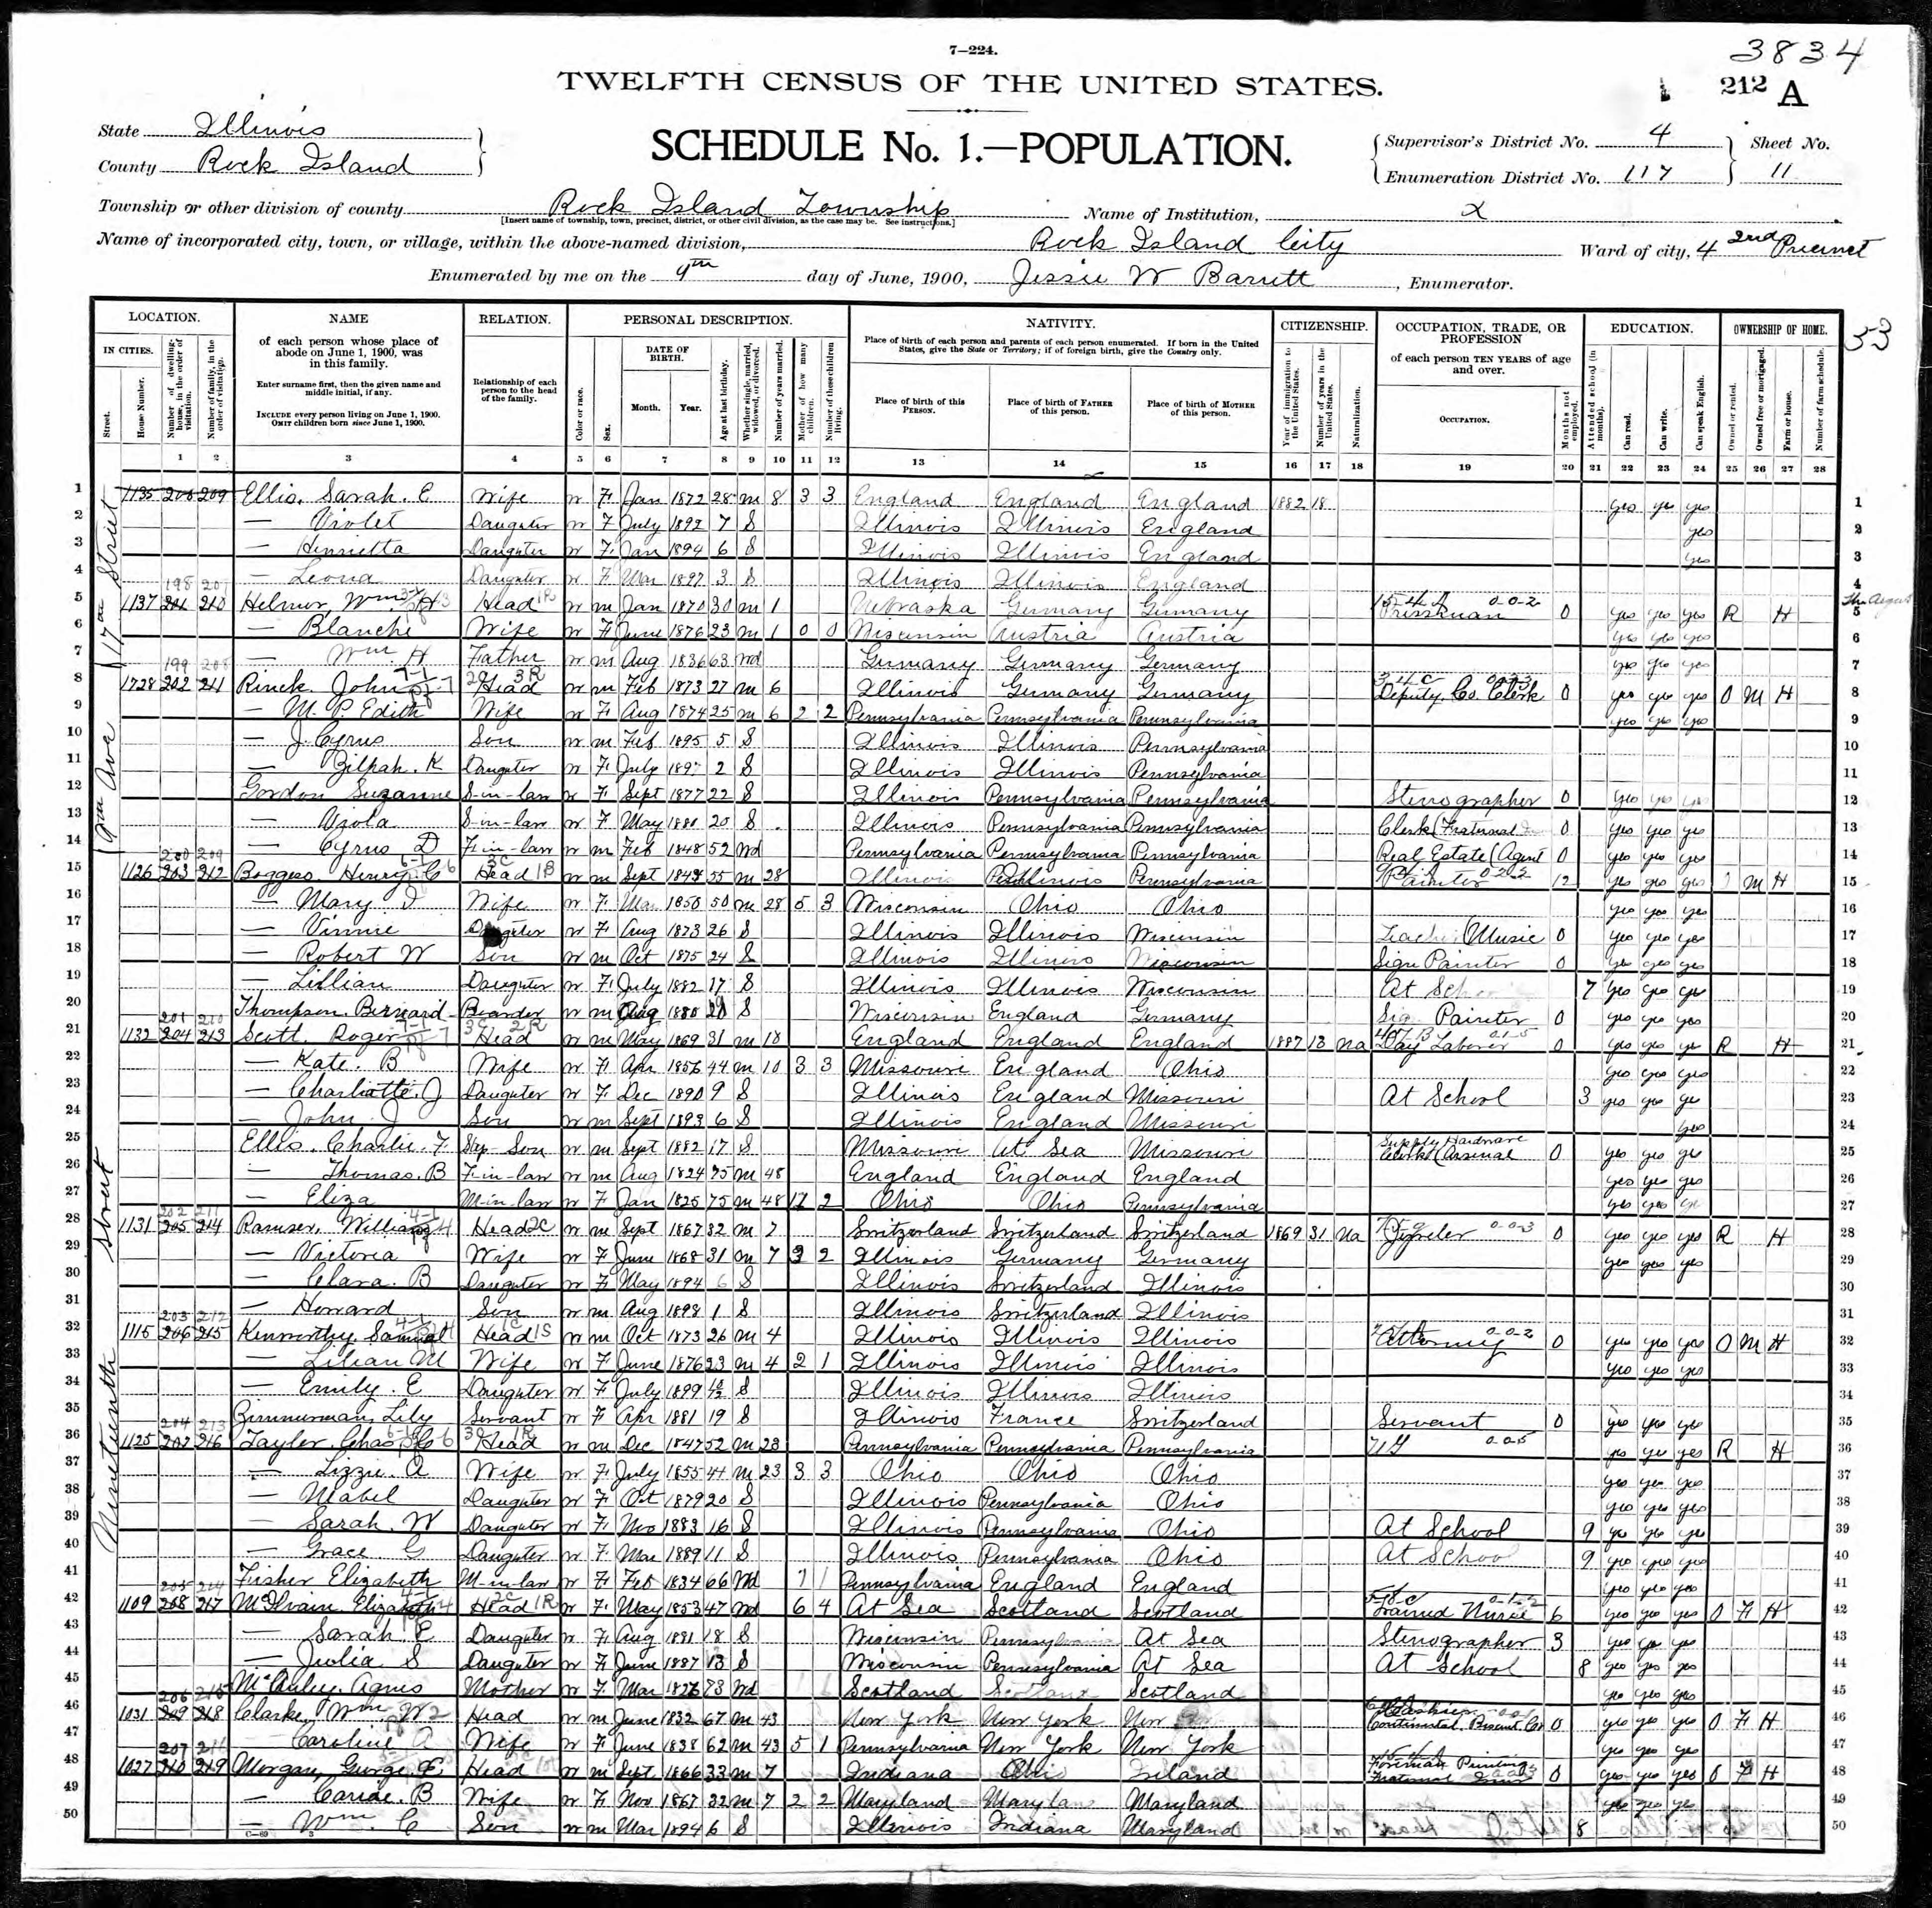 7—224.
3834
TWELFTH CENSUS OF THE UNITED STATES.
212 A
State Illinois
County Rock Island
SCHEDULE No. 1.—POPULATION.
Supervisor's District No. 4 Sheet No.
Enumeration District No. 117 11
Township or other division of county Rock Island Township Name of Institution, X
[Insert name of township, town, precinct, district, or other civil division, as the case may be. See instructions.]
Name of incorporated city, town, or village, within the above-named division, Rock Island City Ward of city, 4 2nd Precinct
Enumerated by me on the 9th day of June, 1900, Jessie W Barrett, Enumerator.
53
LOCATION. NAME RELATION. PERSONAL DESCRIPTION. NATIVITY. CITIZENSHIP. OCCUPATION, TRADE, OR PROFESSION EDUCATION. OWNERSHIP OF HOME.
IN CITIES. of each person whose place of abode on June 1, 1900, was in this family. Relationship of each person to the head of the family. DATE OF BIRTH. Place of birth of each person and parents of each person enumerated. If born in the United States, give the State or Territory; if of foreign birth, give the Country only. of each person TEN YEARS of age and over.
Enter surname first, then the given name and middle initial, if any.
INCLUDE every person living on June 1, 1900. OMIT children born since June 1, 1900.
Street. House Number. Number of dwelling-house, in the order of visitation. Number of family, in the order of visitation. Color or race. Sex. Month. Year. Age at last birthday. Whether single, married, widowed, or divorced. Number of years married. Mother of how many children. Number of these children living. Place of birth of this PERSON. Place of birth of FATHER of this person. Place of birth of MOTHER of this person. Year of immigration to the United States. Number of years in the United States. Naturalization. OCCUPATION. Months not employed. Attended school (in months). Can read. Can write. Can speak English. Owned or rented. Owned free or mortgaged. Farm or house. Number of farm schedule.
1 2 3 4 5 6 7 8 9 10 11 12 13 14 15 16 17 18 19 20 21 22 23 24 25 26 27 28
17th Street
1 1135 208 209 Ellis, Sarah. E Wife W F Jan 1872 28 M 8 3 3 England England England 1882 18 yes yes yes 1
2 — Violet Daughter W F July 1892 7 S Illinois Illinois England yes 2
3 — Henrietta Daughter W F Jan 1894 6 S Illinois Illinois England yes 3
4 — Leona Daughter W F Mar 1897 3 S Illinois Illinois England 4
5 1137 201 210 Helmer, Wm H Head W M Jan 1870 30 M 1 Nebraska Germany Germany Pressman 0 yes yes yes R H 5
6 — Blanche Wife W F June 1876 23 M 1 0 0 Wisconsin Austria Austria yes yes yes 6
7 — Wm. H Father W M Aug 1836 63 Wd Germany Germany Germany yes yes yes 7
9th Ave
8 1728 202 211 Rinck. John Head W M Feb 1873 27 M 6 Illinois Germany Germany Deputy Co. Clerk 0 yes yes yes O M H 8
9 — M. P. Edith Wife W F Aug 1874 25 M 6 2 2 Pennsylvania Pennsylvania Pennsylvania yes yes yes 9
10 — J. Cyrus Son W M Feb 1895 5 S Illinois Illinois Pennsylvania 10
11 — Zilpah. K Daughter W F July 189 2 S Illinois Illinois Pennsylvania 11
12 Gordon Suzanne S-in-law W F Sept 1877 22 S Illinois Pennsylvania Pennsylvania Stenographer 0 yes yes yes 12
13 — Viola S-in-law W F May 1880 20 S Illinois Pennsylvania Pennsylvania Clerk (Fraternal 0 yes yes yes 13
14 — Cyrus D F-in-law W M Feb 1848 52 Wd Pennsylvania Pennsylvania Pennsylvania Real Estate (Agent 0 yes yes yes 14
15 1126 203 212 Boggess Henry C Head W M Sept 1844 55 M 28 Illinois Illinois Pennsylvania Painter 12 yes yes yes M H 15
16 — Mary I Wife W F Mar 1850 50 M 28 5 3 Wisconsin Ohio Ohio yes yes yes 16
17 — Vinnie Daughter W F Aug 1873 26 S Illinois Illinois Wisconsin Teacher Music 0 yes yes yes 17
18 — Robert W Son W M Oct 1875 24 S Illinois Illinois Wisconsin Sign Painter 0 yes yes yes 18
19 — Lillian Daughter W F July 1882 17 S Illinois Illinois Wisconsin At School 7 yes yes yes 19
20 Thompson. Bernard Boarder W M Aug 1880 S Wisconsin England Germany Sign Painter 0 yes yes yes 20
21 1132 204 213 Scott. Roger Head W M May 1869 31 M 10 England England England 1887 13 Na Day Laborer 0 yes yes yes R H 21
22 — Kate. B Wife W F Apr 1856 44 M 10 3 3 Missouri England Ohio yes yes yes 22
23 — Charlotte. J Daughter W F Dec 1890 9 S Illinois England Missouri At School 3 yes yes yes 23
24 — John J Son W M Sept 1893 6 S Illinois England Missouri yes 24
25 Ellis. Charlie. F. Step-Son W M Sept 1882 17 S Missouri At Sea Missouri Supply Hardware Clerk (Arsenal 0 yes yes yes 25
26 — Thomas. B F-in-law W M Aug 1824 75 M 48 England England England yes yes yes 26
27 — Eliza M-in-law W F Jan 1825 75 M 48 2 Ohio Ohio Pennsylvania yes yes yes 27
Nineteenth Street
28 1131 205 214 Ramser, William Head W M Sept 1867 32 M 7 Switzerland Switzerland Switzerland 1869 31 Na Jeweler 0 yes yes yes R H 28
29 — Victoria Wife W F June 1868 31 M 7 3 2 Illinois Germany Germany yes yes yes 29
30 — Clara. B Daughter W F May 1894 6 S Illinois Switzerland Illinois 30
31 — Howard Son W M Aug 1898 1 S Illinois Switzerland Illinois 31
32 1115 206 215 Kenworthy Samuel Head W M Oct 1873 26 M 4 Illinois Illinois Illinois Attorney 0 yes yes yes O M H 32
33 — Lilian M Wife W F June 1876 23 M 4 2 1 Illinois Illinois Illinois yes yes yes 33
34 — Emily. E Daughter W F July 1899 10/12 S Illinois Illinois Illinois 34
35 Zimmerman, Lily Servant W F Apr 1881 19 S Illinois France Switzerland Servant 0 yes yes yes 35
36 1125 207 216 Tayler. Chas Head W M Dec 1847 52 M 23 Pennsylvania Pennsylvania Pennsylvania yes yes yes R H 36
37 — Lizzie. A Wife W F July 1855 44 M 23 3 3 Ohio Ohio Ohio yes yes yes 37
38 — Mabel Daughter W F Oct 1879 20 S Illinois Pennsylvania Ohio yes yes yes 38
39 — Sarah. W Daughter W F Nov 1883 16 S Illinois Pennsylvania Ohio At School 9 yes yes yes 39
40 — Grace. C Daughter W F Mar 1889 11 S Illinois Pennsylvania Ohio At School 9 yes yes yes 40
41 Fisher Elizabeth M-in-law W F Feb 1834 66 Wd 1 Pennsylvania England England yes yes yes 41
42 1109 208 217 McIlvain. Elizabeth Head W F May 1853 47 Wd 6 4 At Sea Scotland Scotland Trained Nurse 6 yes yes yes O F H 42
43 — Sarah E Daughter W F Aug 1881 18 S Wisconsin Pennsylvania At Sea Stenographer 3 yes yes yes 43
44 — Julia S Daughter W F June 1887 S Wisconsin Pennsylvania At Sea At School 8 yes yes yes 44
45 McAuley. Agnes Mother W F Mar 73 Wd Scotland Scotland Scotland yes yes yes 45
46 1031 209 218 Clarke, Wm W Head W M June 1832 67 M 43 New York New York New Continental Biscuit Co 0 yes yes yes O F H 46
47 — Caroline A Wife W F June 1838 62 M 43 5 1 Pennsylvania New York New York yes yes yes 47
48 1027 210 219 Morgan, George. E Head W M Sept 1866 33 M 7 Indiana Ohio Ireland Foreman Printing 0 yes yes yes O F H 48
49 — Carrie. B Wife W F Nov 1867 32 M 7 2 2 Maryland Maryland Maryland yes yes yes 49
50 — Wm. C Son W M Mar 1894 6 S Illinois Indiana Maryland 8 50